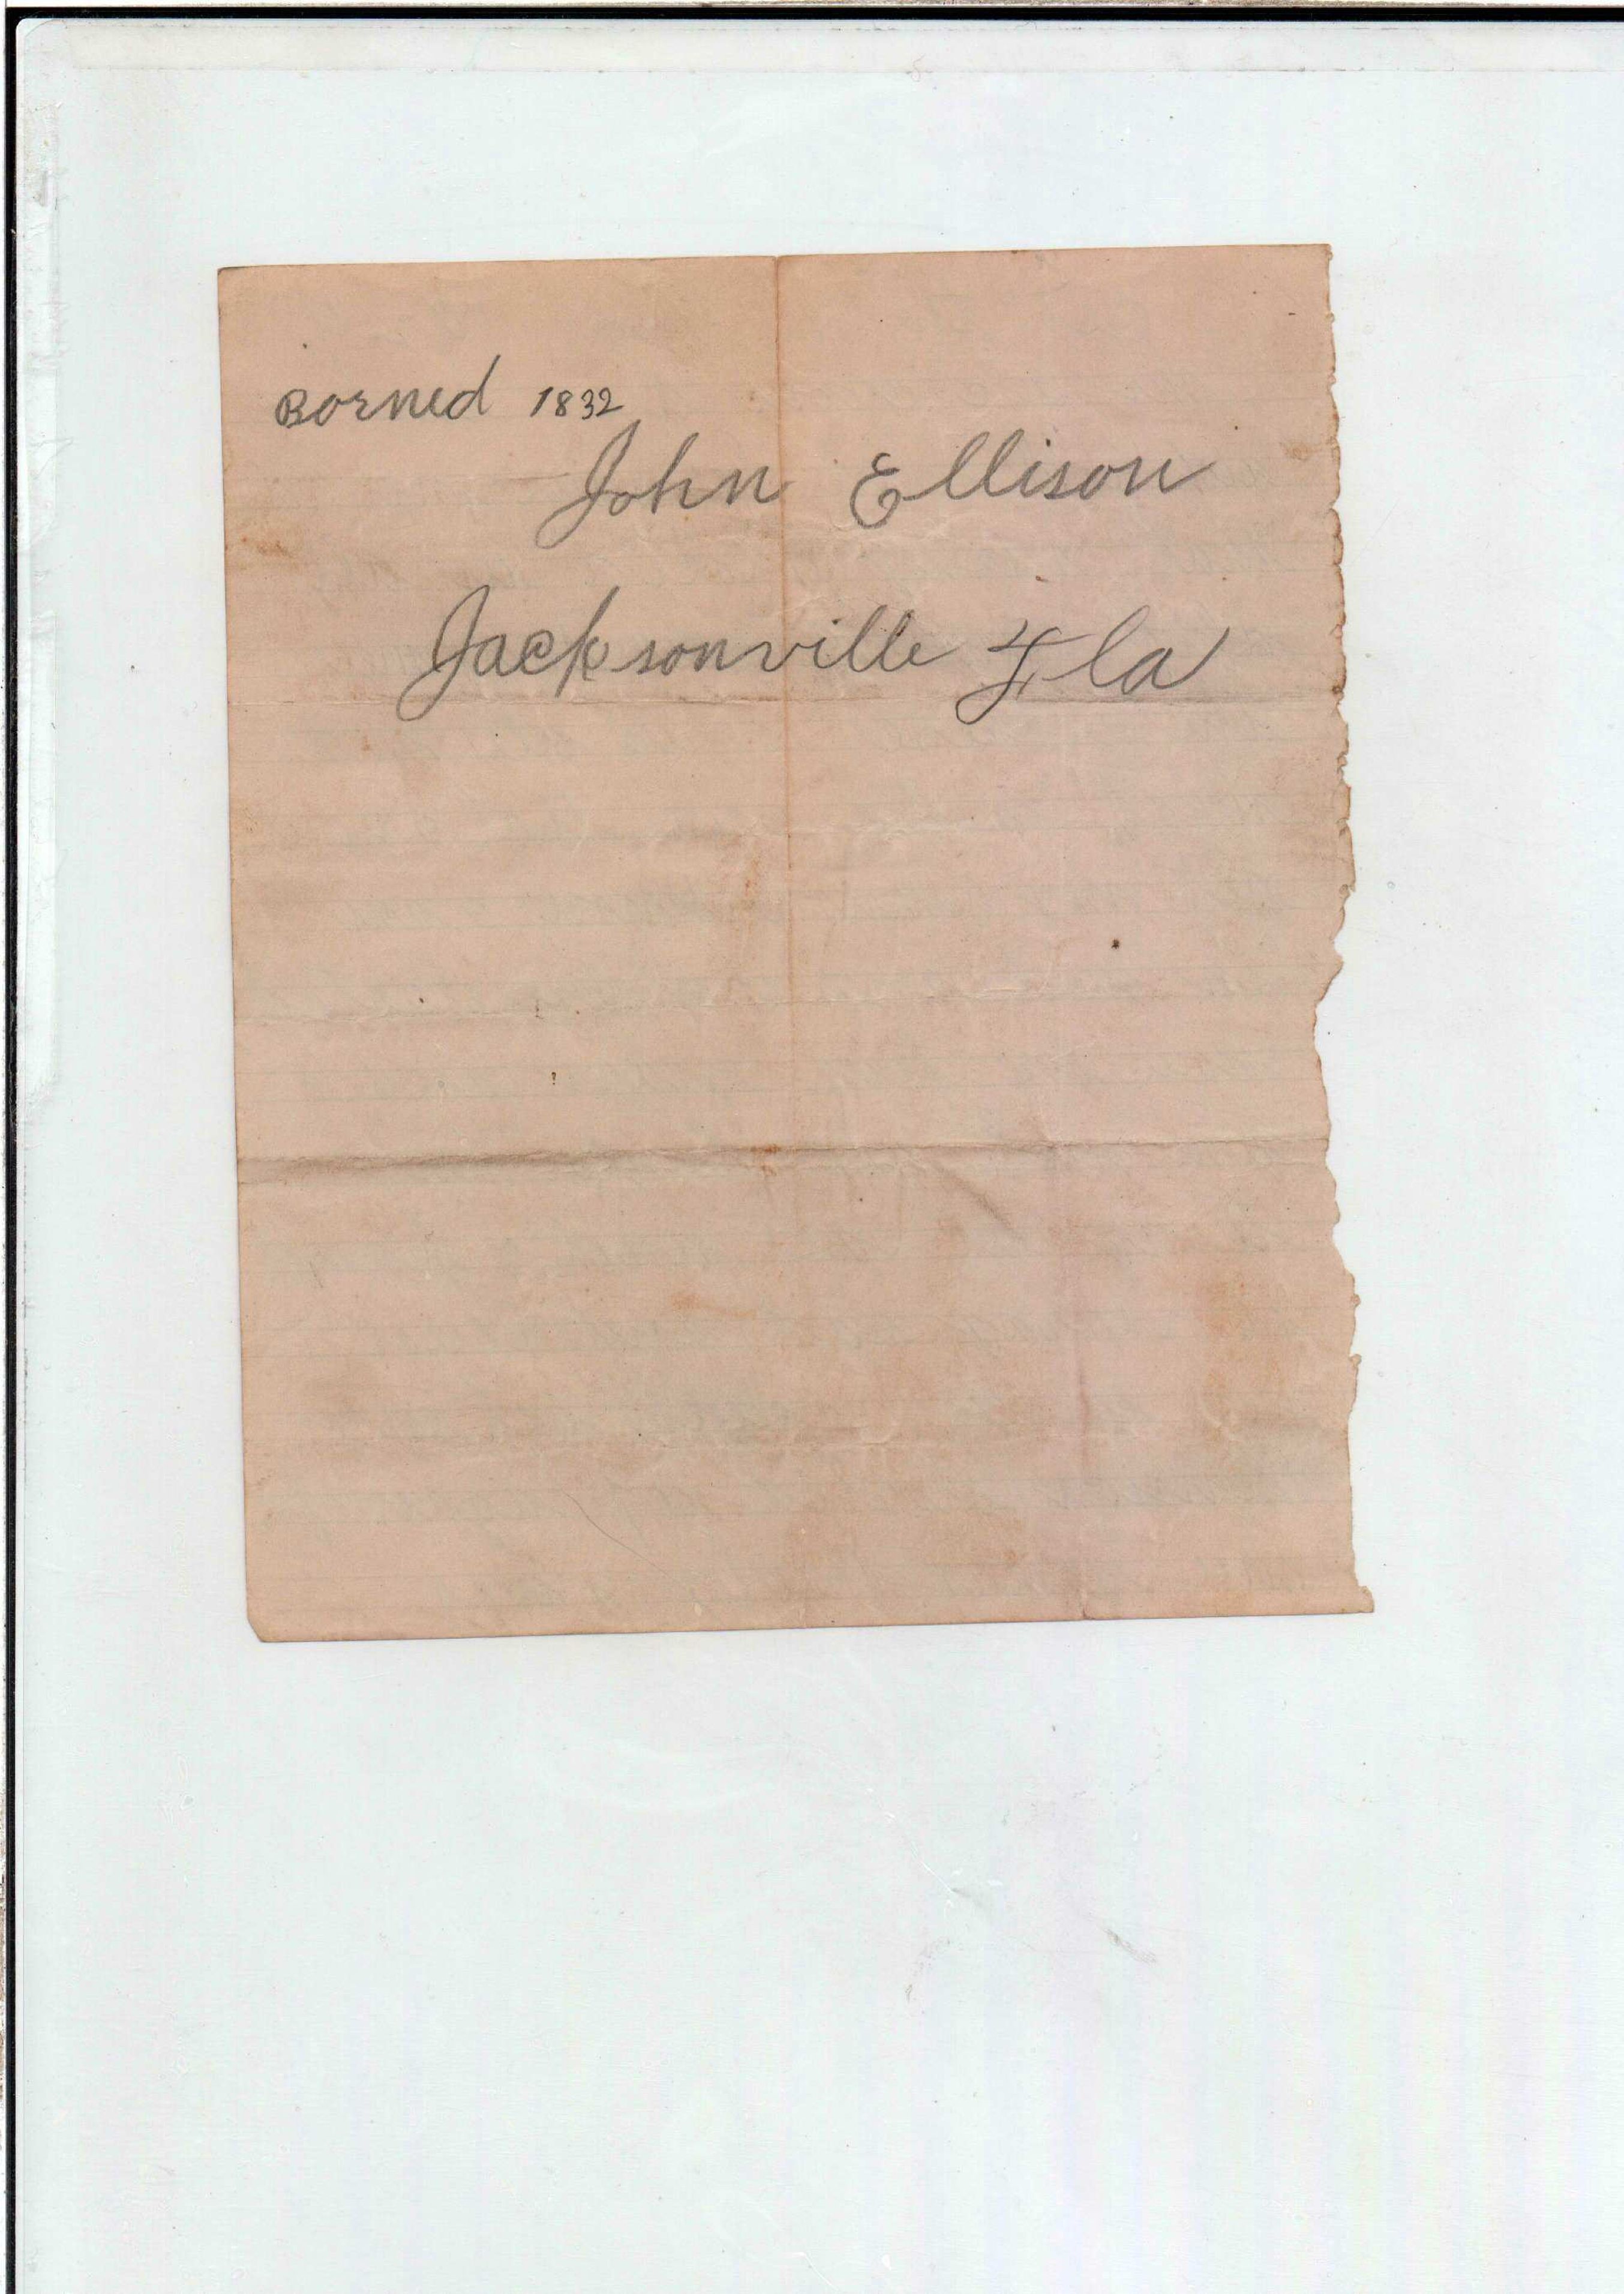 Borned 1832
John Ellison
Jacksonville Fla